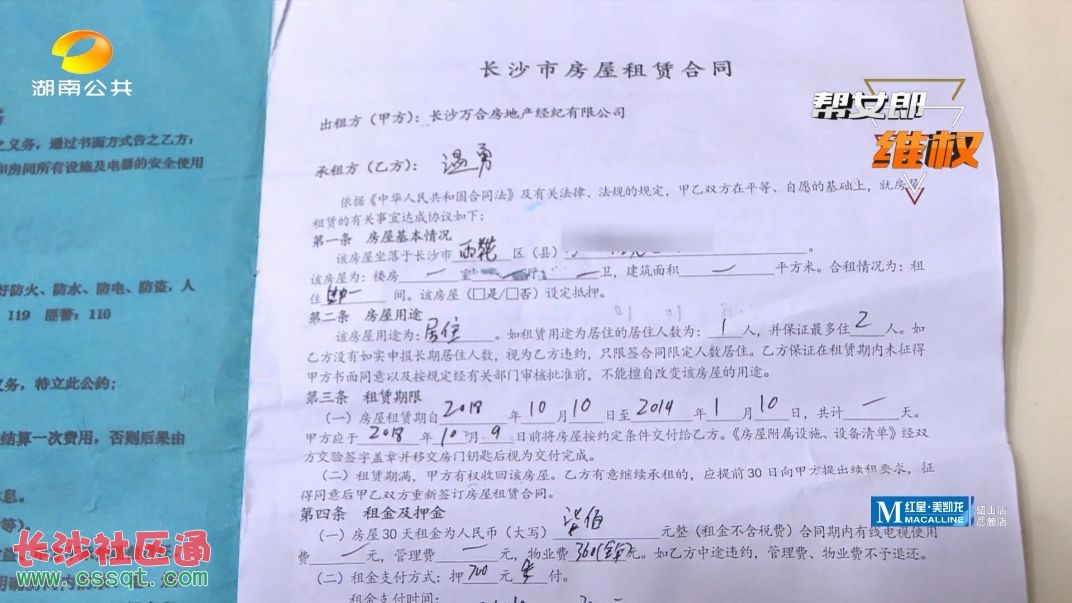 湖南公共
帮女郎
维权
之义务，通过书面方式告之乙方；
和房间所有设施及电器的安全使用
好防火、防水、防电、防盗，人
119 匪警：110
义务，特立此公约；
结算一次费用，否则后果由
长沙市房屋租赁合同
出租方（甲方）：长沙万合房地产经纪有限公司
承租方（乙方）：温勇
依据《中华人民共和国合同法》及有关法律、法规的规定，甲乙双方在平等、自愿的基础上，就房屋
租赁的有关事宜达成协议如下：
第一条 房屋基本情况
该房屋坐落于长沙市 雨花 区（县）
该房屋为：楼房 一 室 厅 一 卫，建筑面积 一 平方米。合租情况为：租
住 间。该房屋（□是/□否）设定抵押。
第二条 房屋用途
该房屋用途为：居住。如租赁用途为居住的居住人数为：1人，并保证最多住 2 人。如
乙方没有如实申报长期居住人数，视为乙方违约，只限签合同限定人数居住。乙方保证在租赁期内未征得
甲方书面同意以及按规定经有关部门审核批准前，不能擅自改变该房屋的用途。
第三条 租赁期限
（一）房屋租赁期自 2018 年 10 月 10 日至 2019 年 1 月 10 日，共计 一 天。
甲方应于 2018 年 10 月 9 日前将房屋按约定条件交付给乙方。《房屋附属设施、设备清单》经双
方交验签字盖章并移交房门钥匙后视为交付完成。
（二）租赁期满，甲方有权收回该房屋。乙方有意继续承租的，应提前30日向甲方提出续租要求，征
得同意后甲乙双方重新签订房屋租赁合同。
第四条 租金及押金
（一）房屋30天租金为人民币（大写）柒佰 元整（租金不含税费）合同期内有线电视使用
费 一 元，管理费 一 元，物业费 360 元。如乙方中途违约，管理费、物业费不予退还。
（二）租金支付方式：押 700 元 季 付。
租金支付时间：
M 红星·美凯龙
MACALLINE
韶山店
岳麓店
长沙社区通
www.cssqt.com